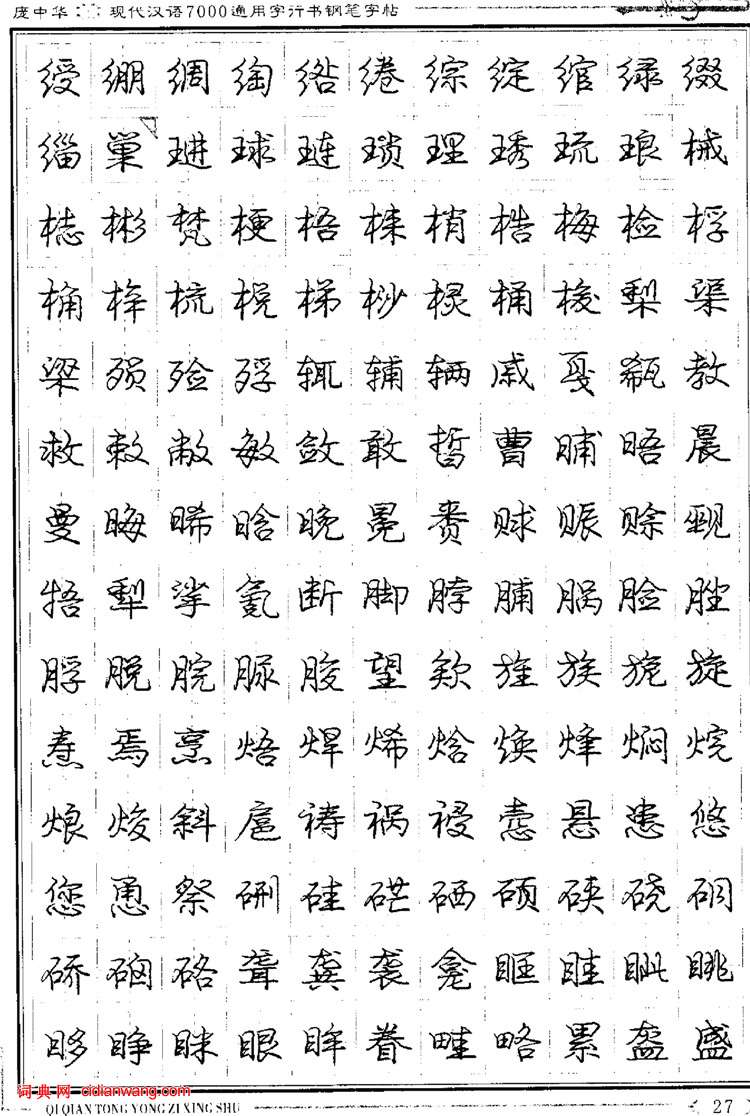 庞中华：现代汉语7000通用字行书钢笔字帖
绶绷绸绹绺绻综绽绾绿缀
缁巢琎球琏琐理琇琉琅械
梽彬梵梗梧梾梢梏梅检桴
桷梓梳棁梯桫棂桶梭梨渠
梁殒殓殍辄辅辆戚戛瓻教
救敕敝敏敛敢晢曹晡晤晨
曼晦晞晗晚冕赉赇赈赊觋
牾犁挲氪断脚脖脯脶脸脞
脬脱脘脲朘望欸旌族旎旋
焘焉烹焐焊烯焓焕烽焖烷
烺焌斜扈祷祸祲悫悬患悠
您恿祭硎硅硭硒硕硖硗硐
硚硇硌聋龚袭龛眶眭眦眺
眵睁眯眼眸眷畦略累盔盛
词典网 cidianwang.com
QI QIAN TONG YONG ZI XING SHU
27